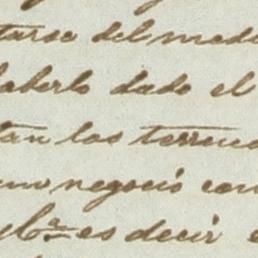 tarse del medi
haberlo dado el
tan los terreno
un negocio con
es decir e